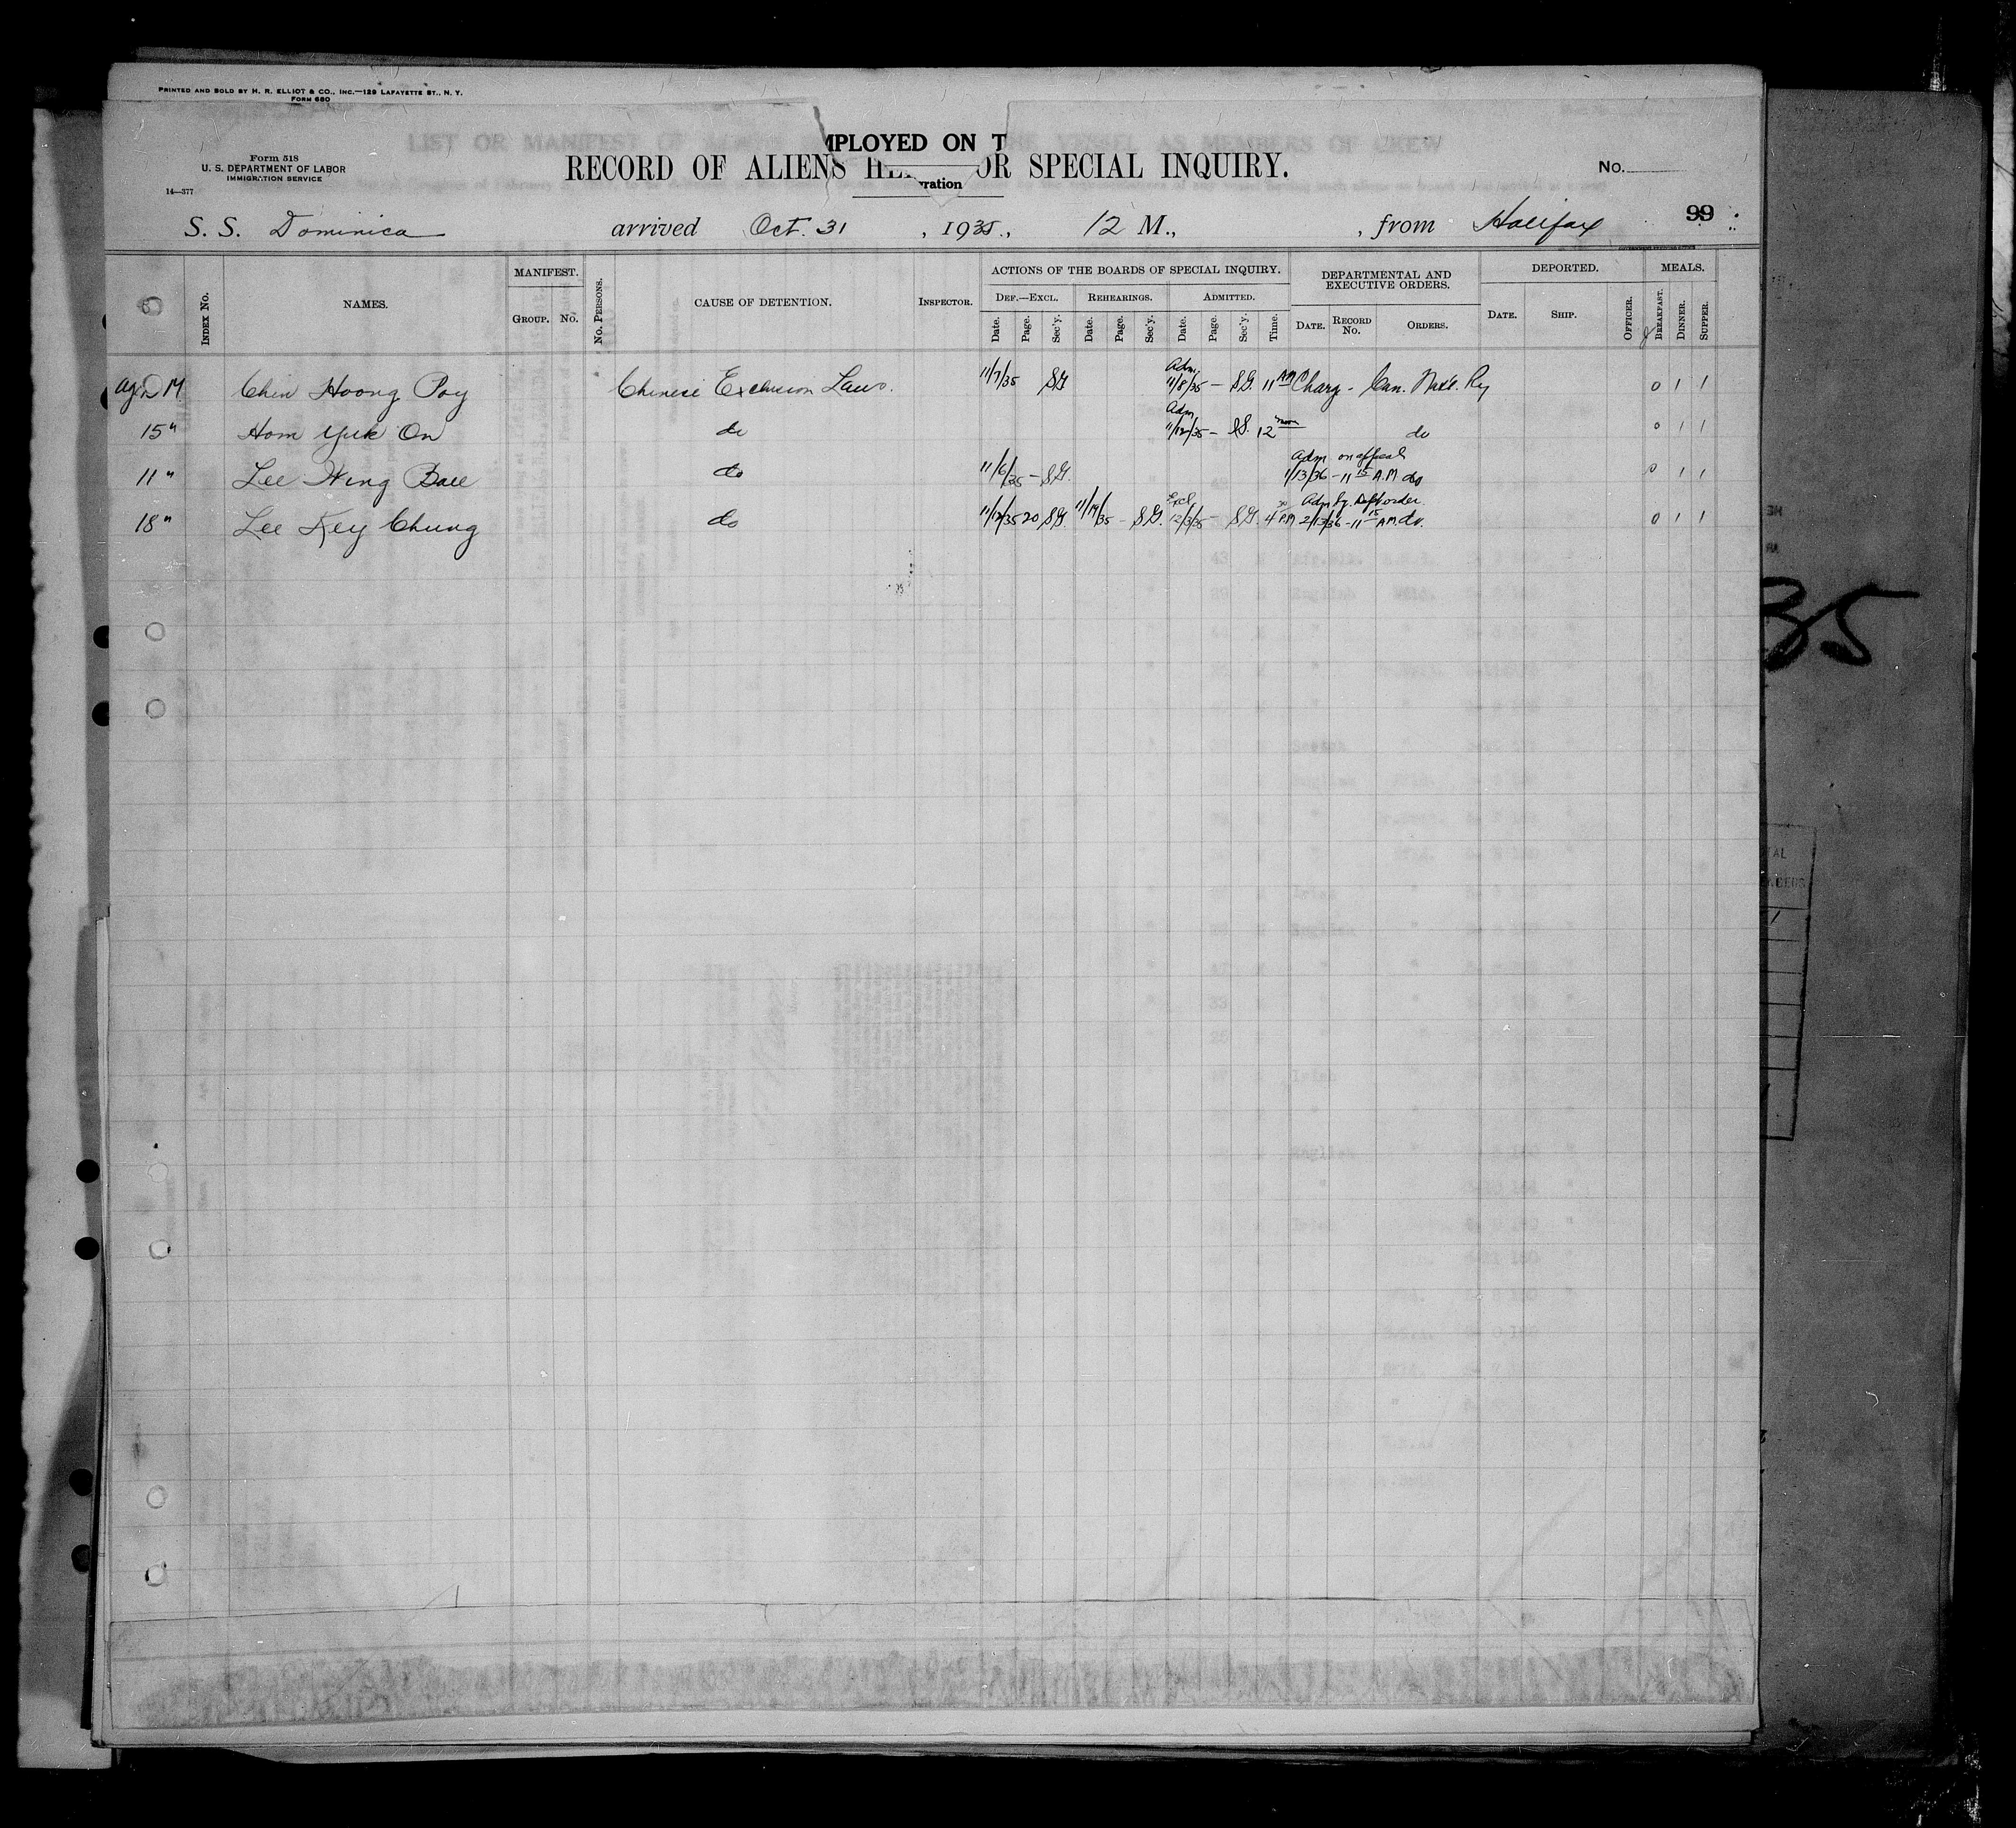 PRINTED AND SOLD BY H. R. ELLIOT & CO., INC.—129 LAFAYETTE ST., N. Y.
FORM 660
LIST OR MANIFEST OF ALIENS EMPLOYED ON THE VESSEL AS MEMBERS OF CREW
Form 518
U. S. DEPARTMENT OF LABOR
IMMIGRATION SERVICE
14—377
RECORD OF ALIENS HE OR SPECIAL INQUIRY.
ration
No.
S. S. Dominica arrived Oct. 31, 1935, 12 M., from Halifax
99
INDEX No. NAMES. MANIFEST. GROUP. No. No. PERSONS. CAUSE OF DETENTION. INSPECTOR.
ACTIONS OF THE BOARDS OF SPECIAL INQUIRY.
DEF.—EXCL. Date. Page. Sec'y.
REHEARINGS. Date. Page. Sec'y.
ADMITTED. Date. Page. Sec'y. Time.
DEPARTMENTAL AND EXECUTIVE ORDERS. DATE. RECORD No. ORDERS.
DEPORTED. DATE. SHIP. OFFICER.
MEALS. BREAKFAST. DINNER. SUPPER.
M. Chin Hoong Poy Chinese Exclusion Laws. 11/7/35 SG Adm. 11/8/35 — SG. 11 AM Charge - Can. Nat'l. Ry 0 1 1
15 " Hom Yuk On do Adm 11/12/35 — SS. 12 noon do 0 1 1
11 " Lee Wing Bali do 11/6/35 — SG. Adm on appeal 1/13/36 — 11 15 A.M do 0 1 1
18 " Lee Key Chung do 11/12/35 20 SG. 11/19/35 - SG. Excl 12/3/35 — SG. 4 30 P.M Adm by Dept order 2/13/36 — 11 15 A.M. do. 0 1 1
35